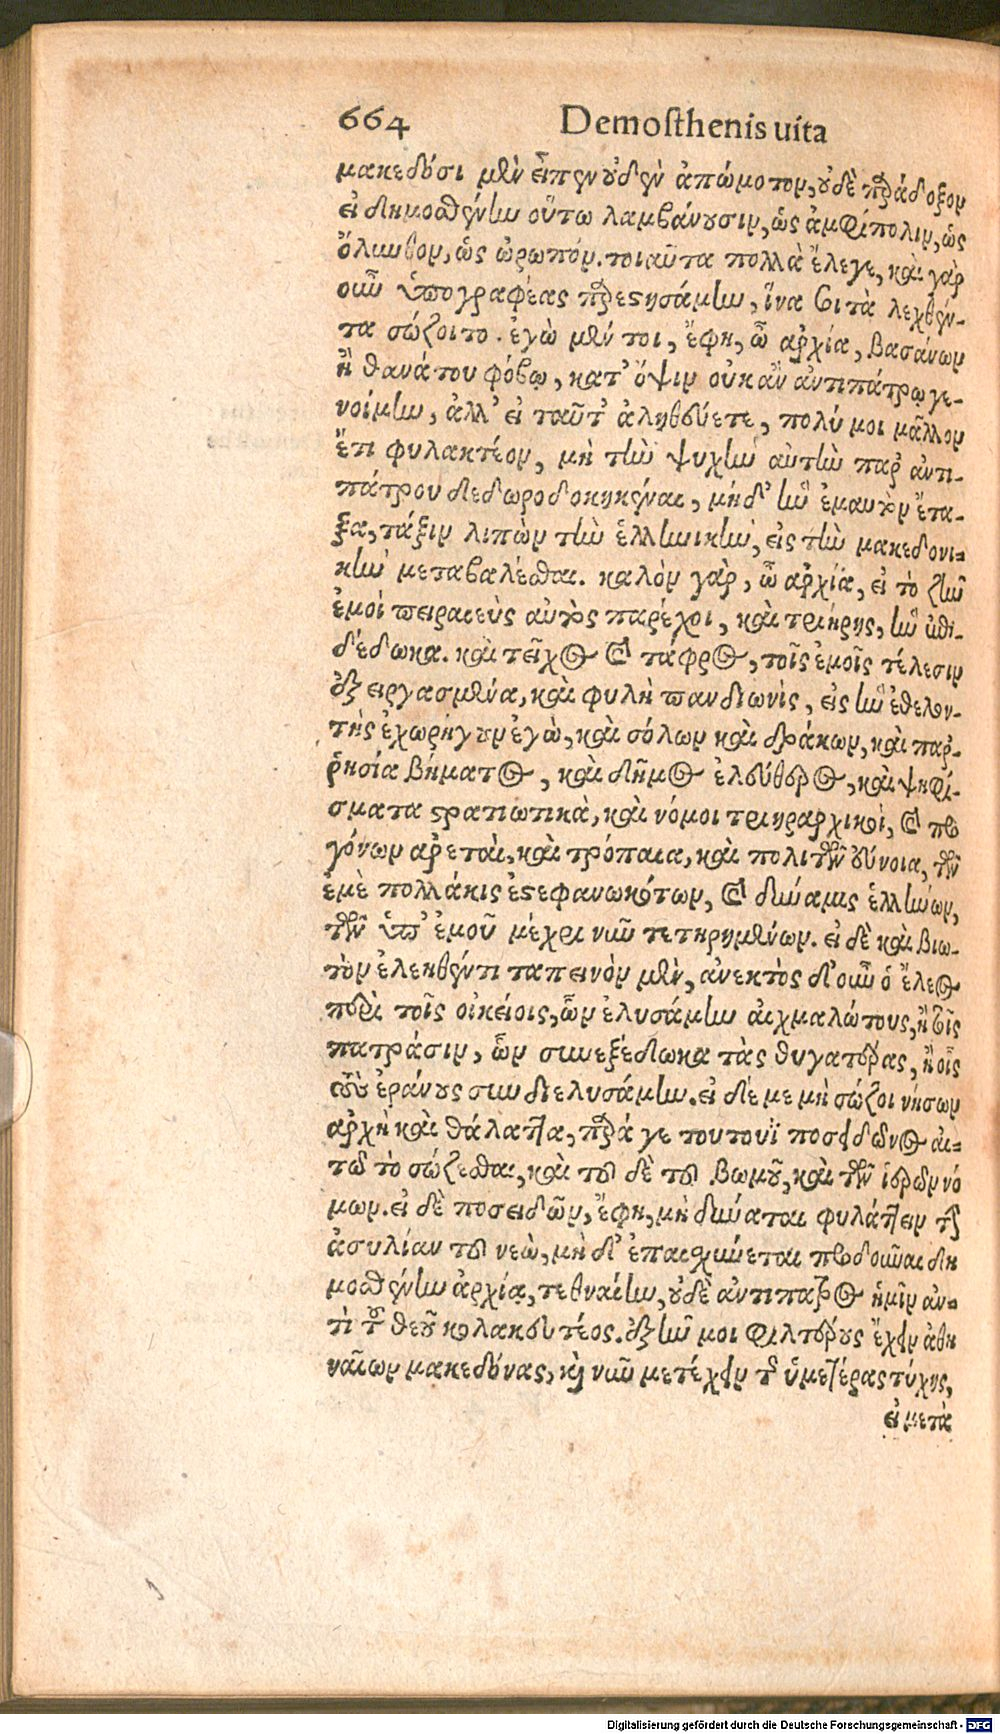 664 Demosthenis uita
μακεδόσι μὲν εἶπεν οὐδὲν ἀπώμοτον, οὐδὲ παράδοξον
εἰ δημοσθένην οὕτω λαμβάνουσιν, ὡς ἀμφίπολιν, ὡς
ὄλυνθον, ὡς ὠρωπόν. τοιαῦτα πολλὰ ἔλεγε, καὶ γὰρ
οὖν ὑπογραφέας παρεστησάμην, ἵνα οἱ τὰ λεχθέν-
τα σώζοιτο. ἐγὼ μέν τοι, ἔφη, ὦ ἀρχία, βασάνων
ἢ θανάτου φόβῳ, κατ' ὄψιν οὐκ ἂν ἀντιπάτρῳ γε-
νοίμην, ἀλλ' εἰ ταῦτ' ἀληθεύετε, πολύ μοι μᾶλλον
ἔτι φυλακτέον, μὴ τὴν ψυχὴν αὐτὴν παρ' ἀντι-
πάτρου δεδωροδοκηκέναι, μηδ' ἣν ἐμαυτὸν ἔτα-
ξα, τάξιν λιπὼν τὴν ἑλληνικὴν, εἰς τὴν μακεδονι-
κὴν μεταβαλέσθαι. καλὸν γὰρ, ὦ ἀρχία, εἰ τὸ ζῆν
ἐμοὶ πειραιεὺς αὐτὸς παρέχοι, καὶ τριήρης, ἣν ἐπι-
δέδωκα. καὶ τεῖχος καὶ τάφρος, τοῖς ἐμοῖς τέλεσιν
ἐξειργασμένα, καὶ φυλὴ πανδιωνὶς, εἰς ἣν ἐθελον-
τὴς ἐχωρήγουν ἐγὼ, καὶ σόλων καὶ δράκων, καὶ παρ-
ρησία βήματος, καὶ δῆμος ἐλεύθερος, καὶ ψηφί-
σματα στρατιωτικὰ, καὶ νόμοι τριηραρχικοὶ, καὶ προ
γόνων ἀρεταὶ, καὶ τρόπαια, καὶ πολιτῶν εὔνοια, τῶν
ἐμὲ πολλάκις ἐστεφανωκότων, καὶ δύναμις ἑλλήνων,
τῶν ὑπ' ἐμοῦ μέχρι νῦν τετηρημένων. εἰ δὲ καὶ βιω-
τὸν ἐλεηθέντι ταπεινὸν μὲν, ἀνεκτὸς δ' οὖν ὁ ἔλεος
παρὰ τοῖς οἰκείοις, ὧν ἐλυσάμην αἰχμαλώτους, ἢ τοῖς
πατράσιν, ὧν συνεξέδωκα τὰς θυγατέρας, ἢ οἷς
τοὺς ἐράνους συνδιελυσάμην. εἰ δέ με μὴ σώζοι νήσων
ἀρχὴ καὶ θάλαττα, παρά γε τουτουῒ ποσειδῶνος αἰ-
τῶ τὸ σώζεσθαι, καὶ τοῦ δὲ τοῦ βωμοῦ, καὶ τῶν ἱερῶν νό
μων. εἰ δὲ ποσειδῶν, ἔφη, μὴ δύναται φυλάττειν τὴν
ἀσυλίαν τοῦ νεὼ, μὴ δ' ἐπαισχύνεται προδοῦναι δη
μοσθένην ἀρχίᾳ, τεθναίην, οὐδὲ ἀντίπατρος ἡμῖν ἀν-
τὶ τοῦ θεοῦ κολακευτέος. ἐξῆν μοι φιλτέρους ἔχειν ἀθη
ναίων μακεδόνας, καὶ νῦν μετέχειν τῆς ὑμετέρας τύχης,
εἰ μετὰ
Digitalisierung gefördert durch die Deutsche Forschungsgemeinschaft - DFG